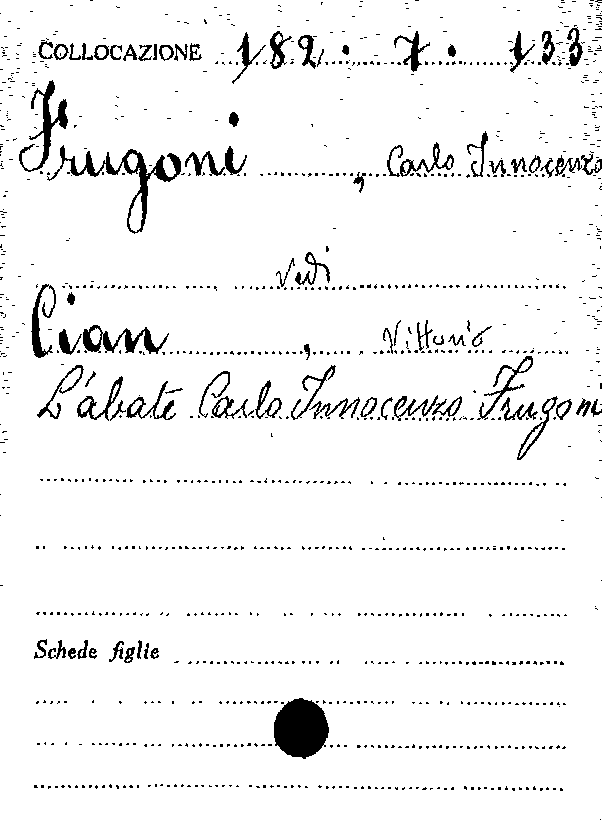 COLLOCAZIONE 182. 7. 133
Frugoni, Carlo Innocenzo
Vedi
Cian, Vittorio
L'abate Carlo Innocenzo Frugoni
Schede figlie